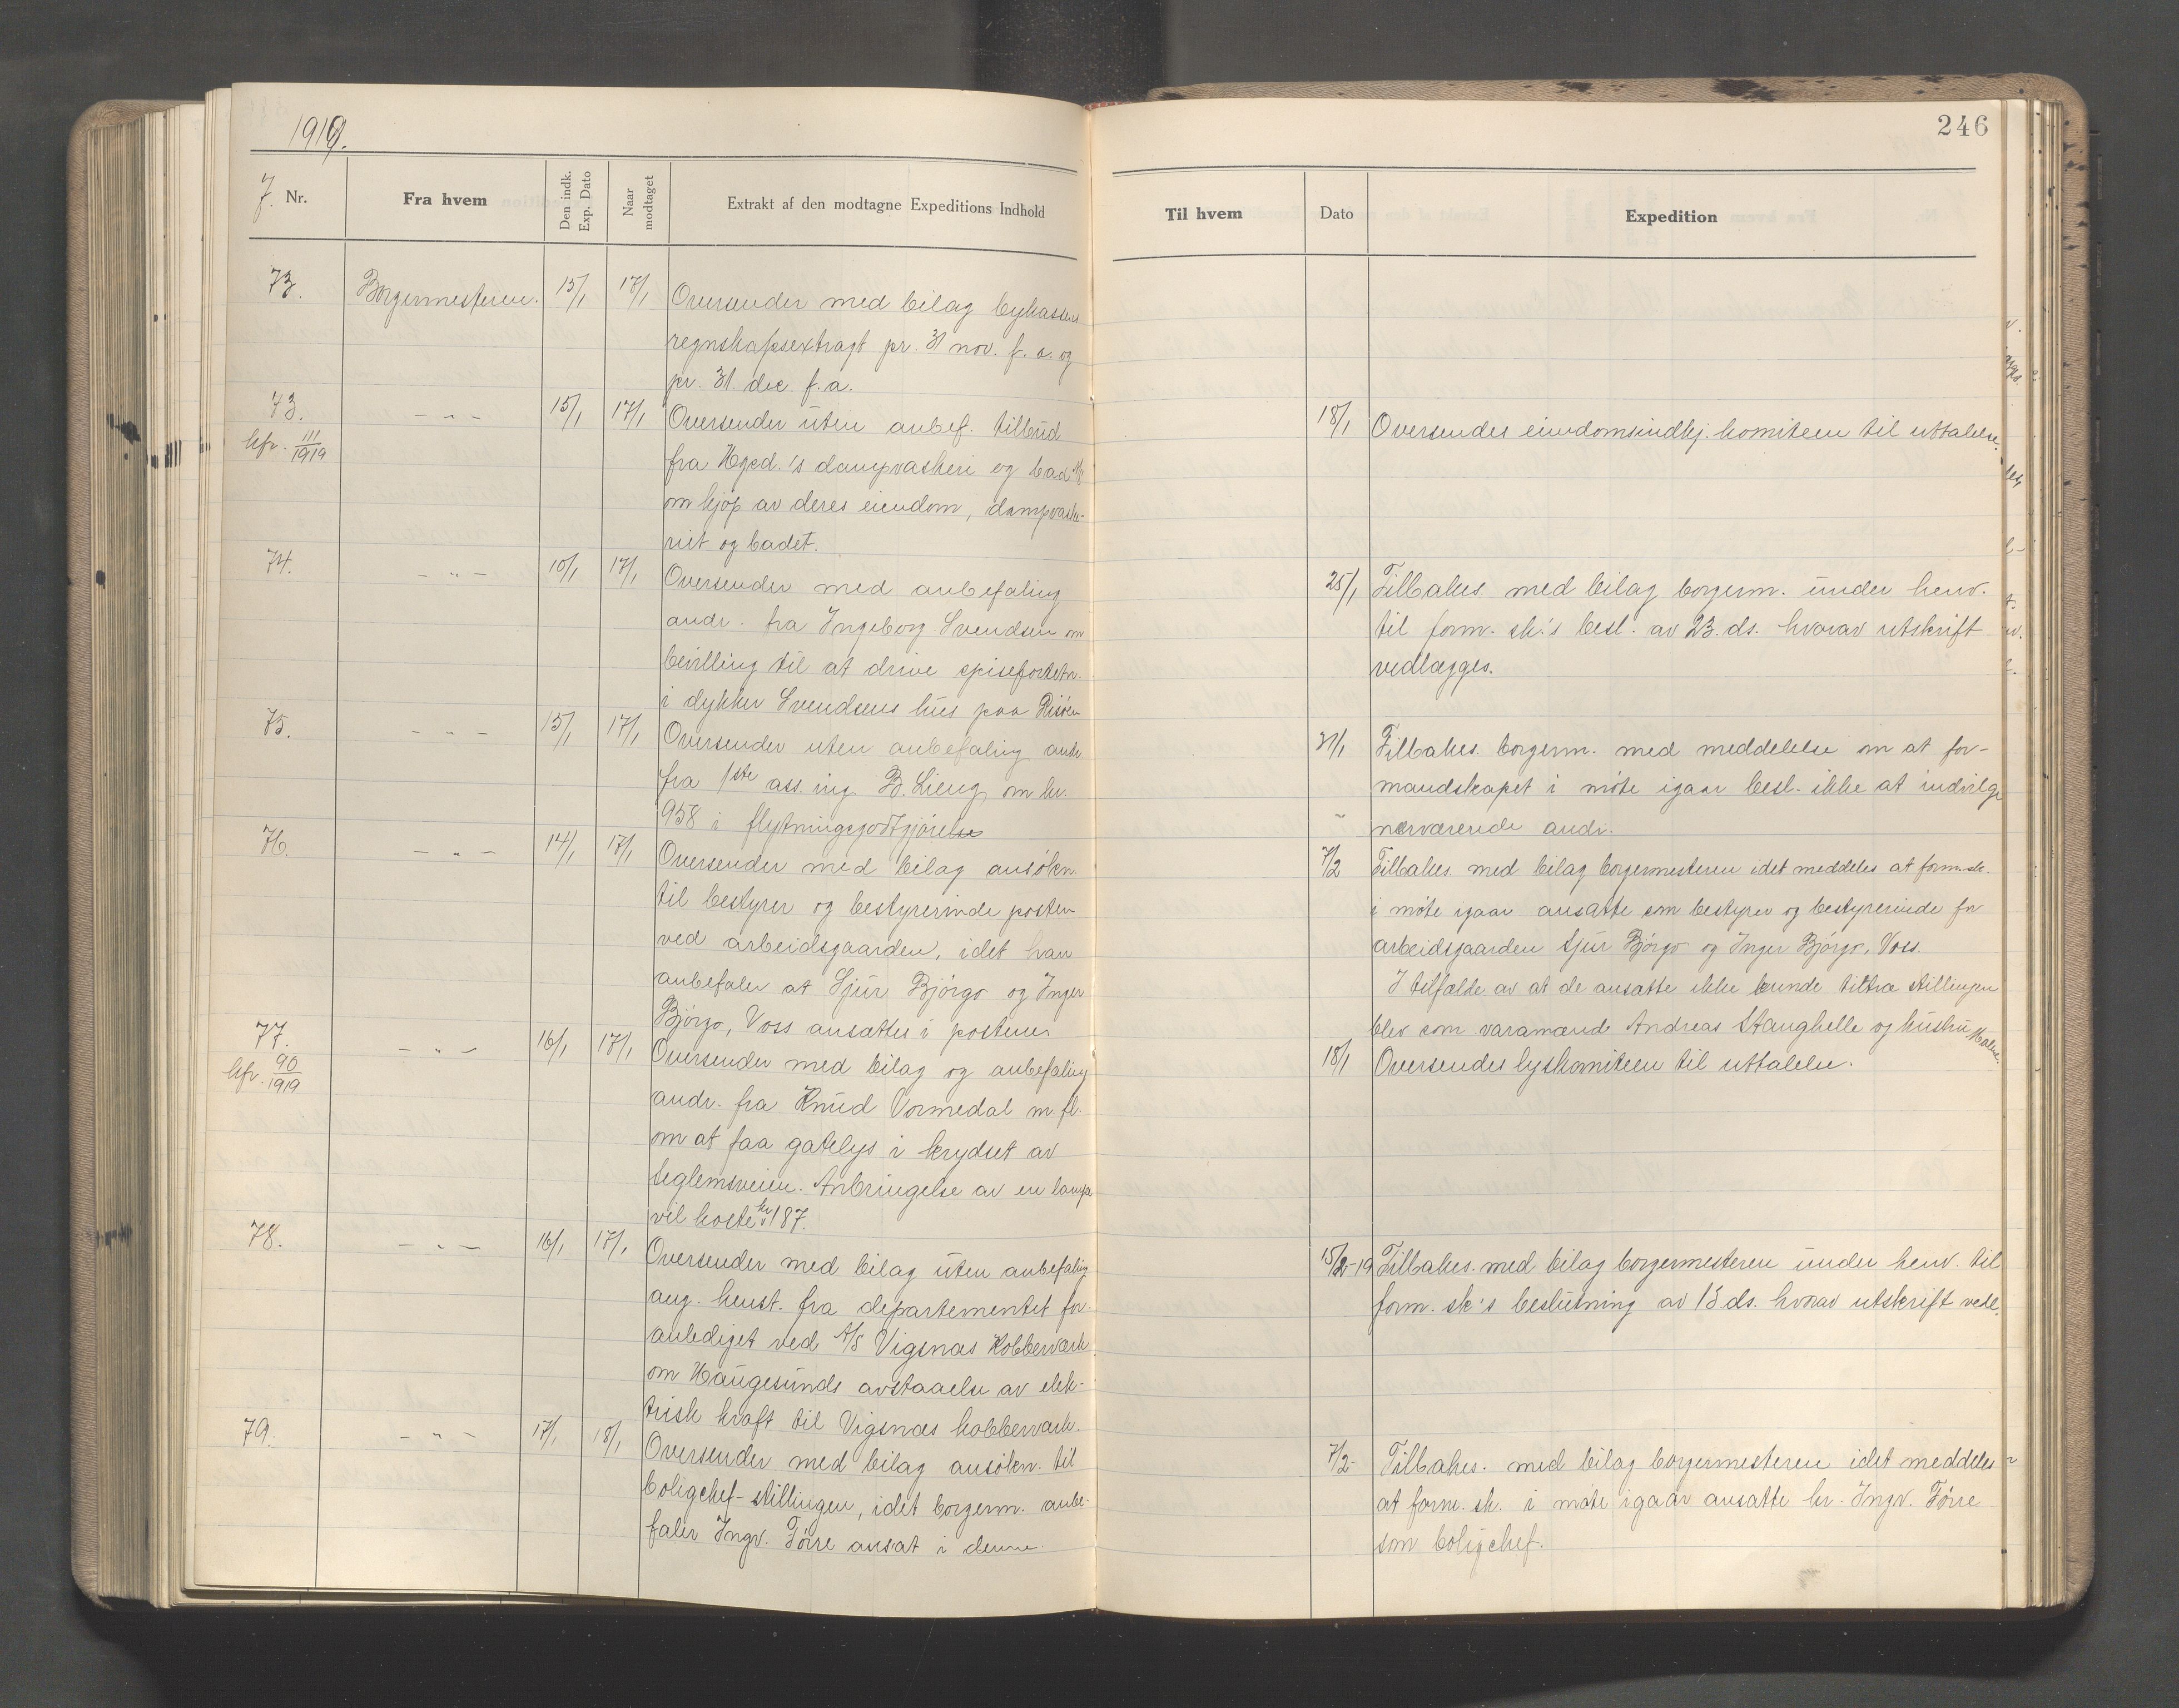 1919.
246
J. Nr.
Fra hvem
Den indk. Exp. Dato
Naar modtaget
Extrakt af den modtagne Expeditions Indhold
Til hvem
Dato
Expedition
73. Borgermesteren. 15/1 17/1 Oversender med bilag bykassens
regnskapsextragt pr. 31 nov. f. a. og
pr. 31. dec. f.a.
73. - " - 15/1 17/1 Oversender uten anbef. tilbud
kfr. 111/1919
fra Hgsd.'s dampvaskeri og bad A/S
om kjöp av deres eiendom, dampvaske-
riet og badet.
18/1 Oversendes eiendomsindkj. komiteen til uttalelse.
74. - " - 10/1 17/1 Oversender med anbefaling
andr. fra Ingeborg Svendsen om
bevilling til at drive spiseforretn.
i dykker Svendsens hus paa Risöen
25/1 Tilbakes. med bilag borgerm. under henv.
til form. sk.'s besl. av 23. ds. hvorav utskrift
vedlægges.
75. - " - 15/1 17/1 Oversender uten anbefaling andr.
fra 1ste ass. ing. B. Lieng om kr.
958 i flytningsgodtgjörelse
31/1 Tilbakes. borgerm. med meddelelse om at for-
mandskapet i möte igaar besl. ikke at indvilge
nærværende andr.
76. - " - 14/1 17/1 Oversender med bilag ansökn.
til bestyrer og bestyrerinde posten
ved arbeidsgaarden, idet han
anbefaler at Sjur Björgo og Inger
Björgo, Voss ansættes i posten.
7/2 Tilbakes. med bilag borgermesteren idet meddeles at form.sk.
i möte igaar ansatte som bestyrer og bestyrerinde for
arbeidsgaarden Sjur Björgo og Inger Björgo, Voss.
I tilfælde av at de ansatte ikke kunde tiltra stillingen
blev som varamænd Andreas Stanghelle og hustru
77. - " - 16/1 17/1 Oversender med bilag og anbefaling
kfr. 90/1919
andr. fra Knud Vormedal m. fl.
om at faa gatelys i krydset av
teglemsveien. Anbringelse av en lampe
vil koste kr 187.
18/1 Oversendes lyskomiteen til uttalelse.
78. - " - 16/1 17/1 Oversender med bilag uten anbefaling
ang. henst. fra departementet for-
anlediget ved A/S Vigsnæs Kobberværk
om Haugesunds avstaaelse av elek-
trisk kraft til Vigsnæs kobberværk.
15/2-19 Tilbakes. med bilag borgermesteren under henv. til
form. sk's beslutning av 13 ds. hvorav utskrift vedl.
79. - " - 17/1 18/1 Oversender med bilag ansökn. til
boligchef-stillingen, idet borgerm. anbe-
faler Ingv. Törre ansat i denne.
7/2 - Tilbakes. med bilag borgermesteren idet meddeles
at form. sk. i möte igaar ansatte hr. Ingv. Törre
som boligchef.